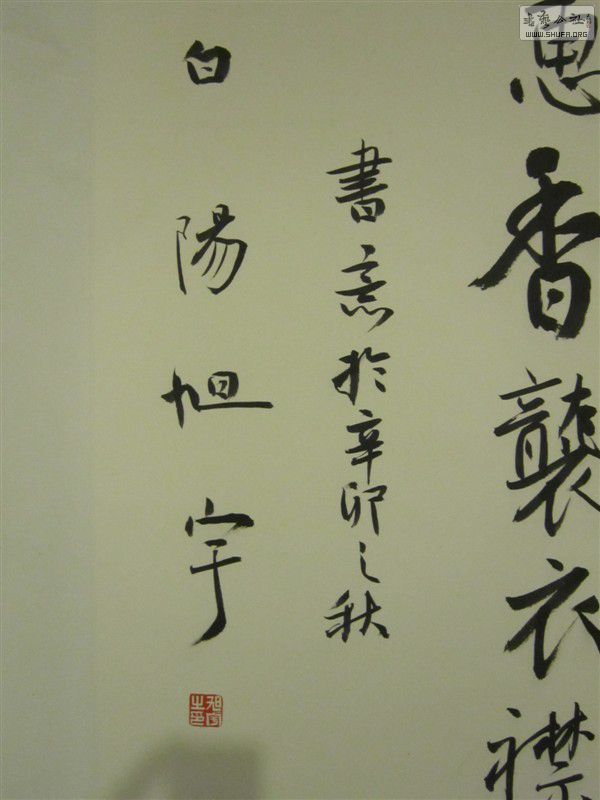 惠香襲衣襟
書意於辛卯之秋
白陽旭宇
旭宇之印
書藝公社
WWW.SHUFA.ORG